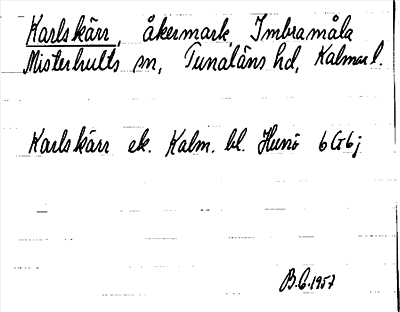 Karlskärr, åkermark, Imbramåla
Misterhults sn, Tunaläns hd, Kalmar l.
Karlskärr ek. Kalm. bl. Hunö 6G6j
B.G. 1957